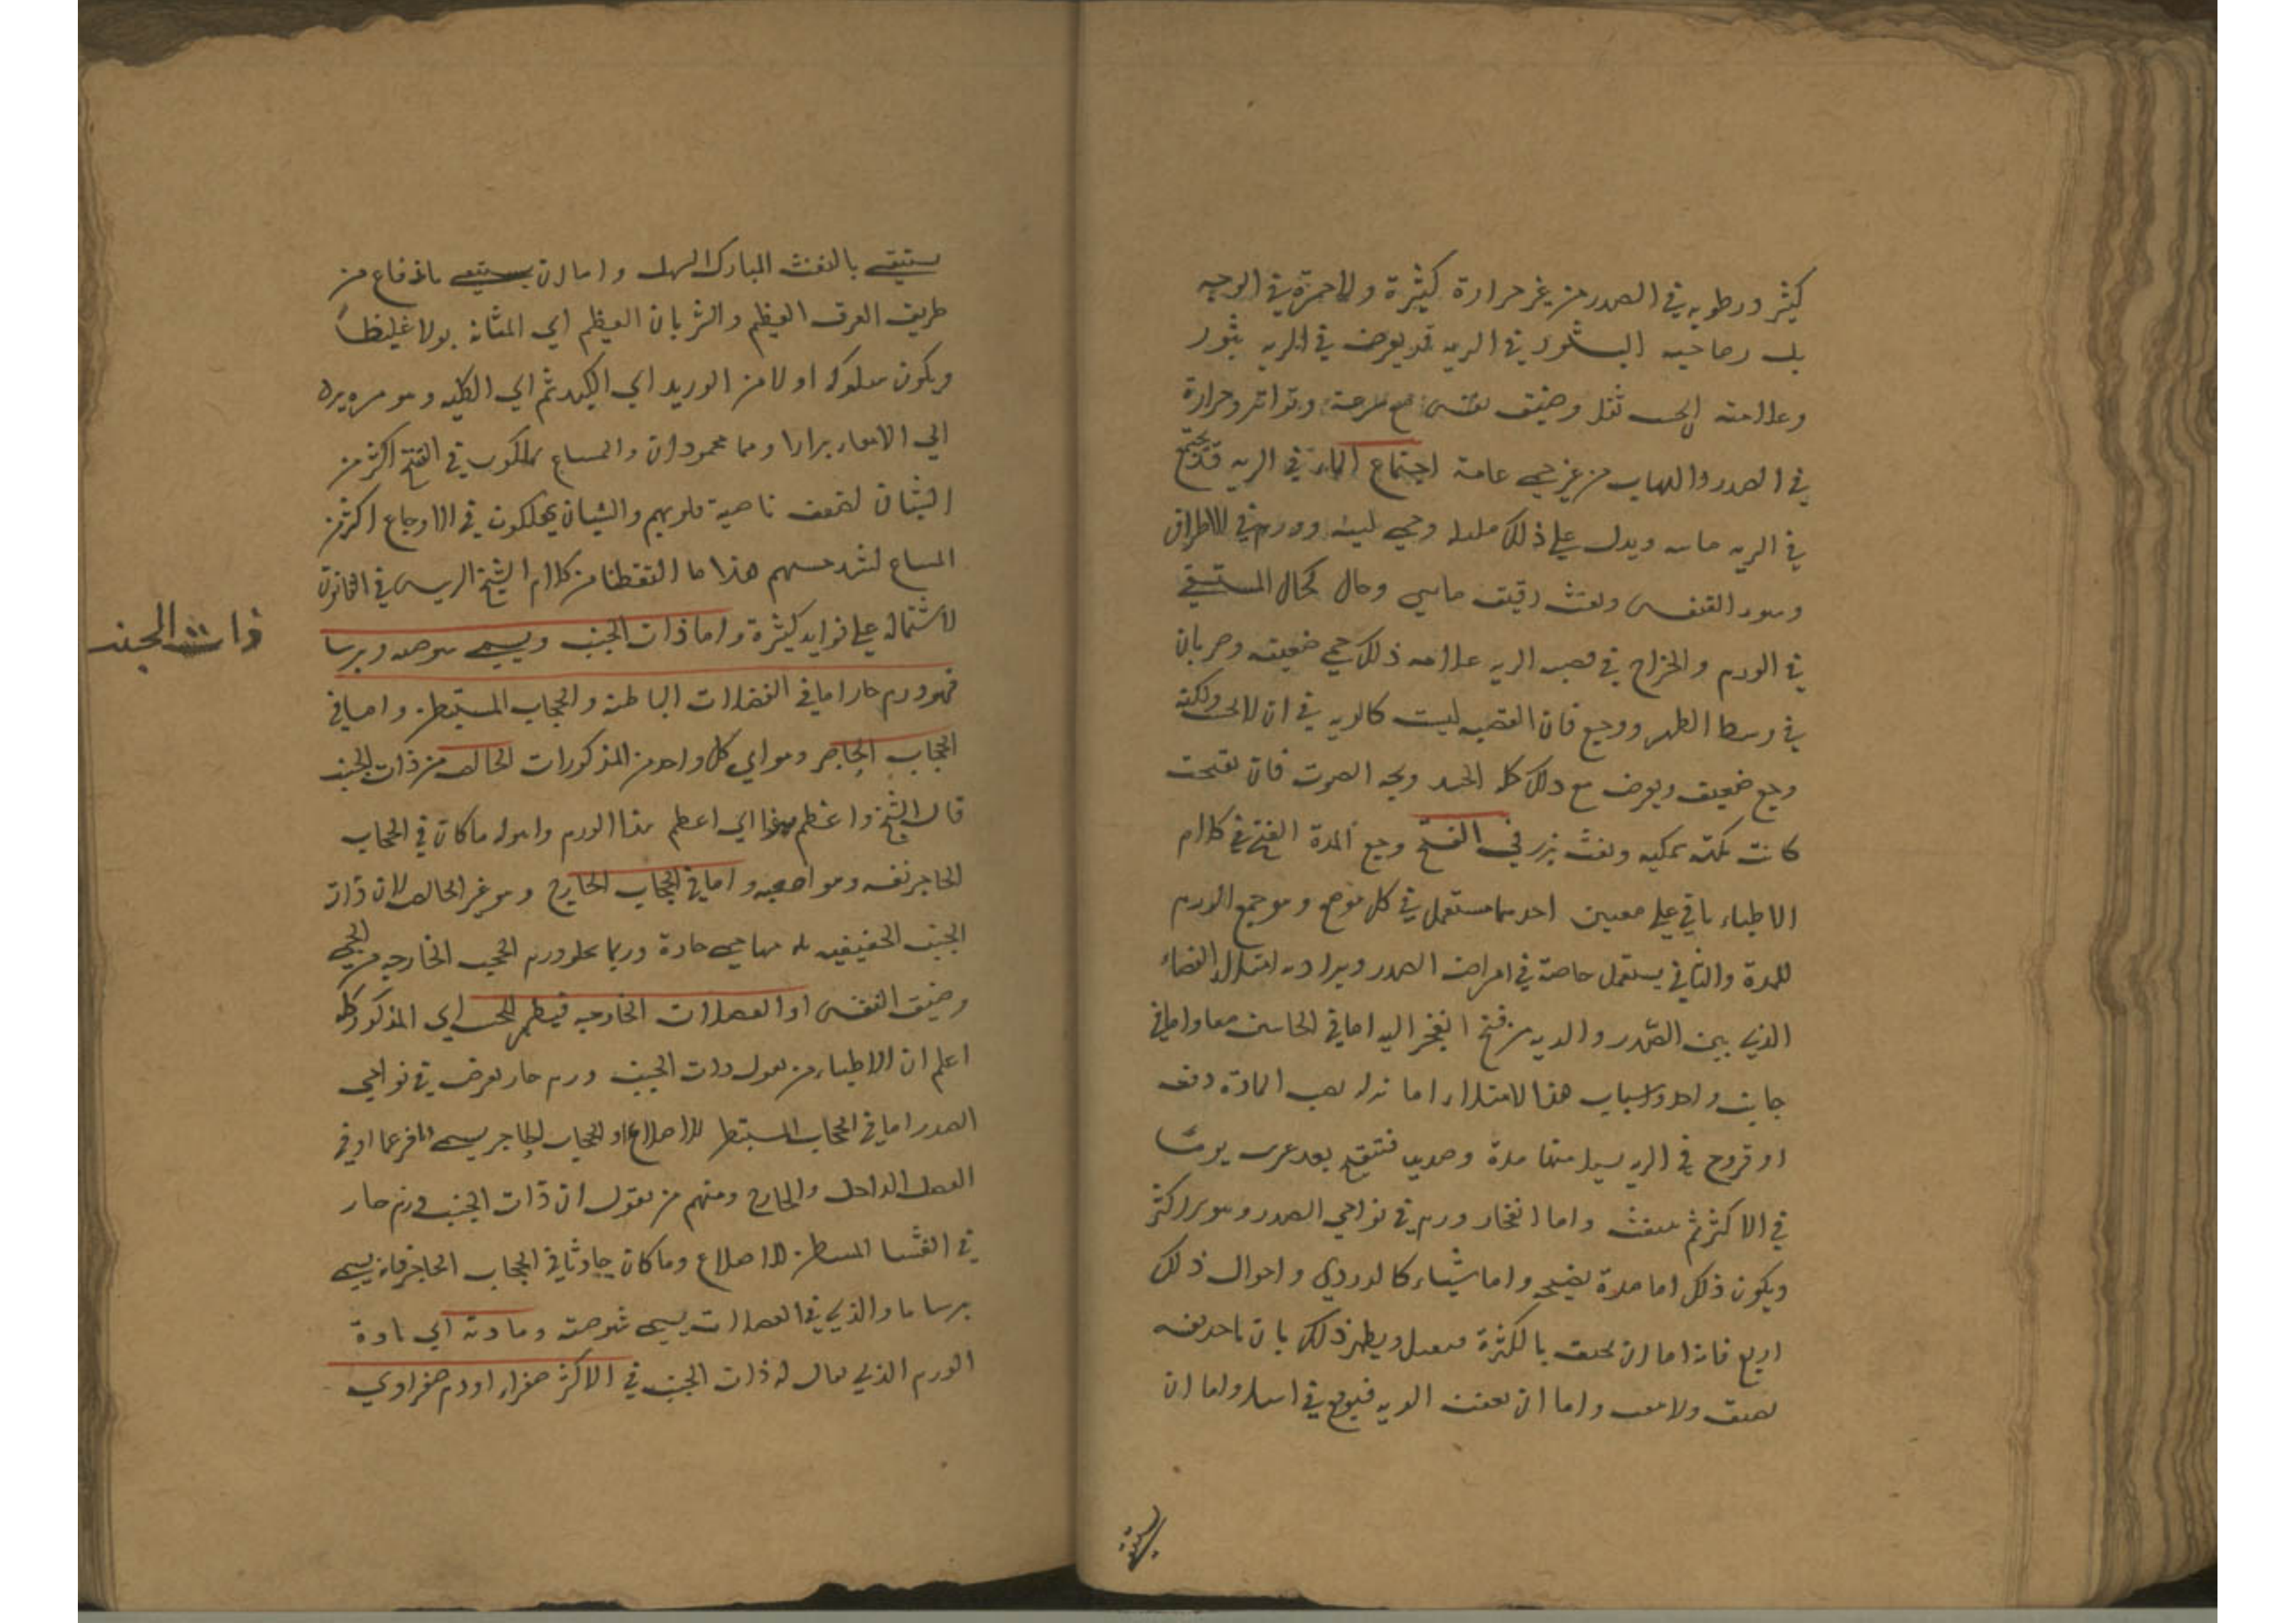 كثير ورطوبه في الصدر من غير حرارة كثيرة ولا حمرة في الوجه
بل رصاصيه البثور في الريه قد يعرض في الريه بثور
وعلامته الحس ثقل وضيق نفس مع سرعة وتواتر وحرارة
في الصدر والتهاب من غير حمي عامة اجتماع الماء في الريه قد يجتمع
في الريه مايه ويدل علي ذلك مليله وحمي لينه وورم في الاطراف
وسوء التنفس ونفث رقيق مايي وحال كحال المستسقي
في الورم والخراج في قصبه الريه علامه ذلك حمي ضعيفه وضربان
في وسط الظهر ووجع فان القصبه ليست كالريه في ان لا تحس ولكنه
وجع ضعيف ويعرض مع ذلك حكه الجسد وبحه الصوت فان تقيحت
كانت نكهته سمكيه ونفث نزر في التقيح وجمع المدة التقيح في كلام
الاطباء ياتي علي معنيين احدهما مستعمل في كل موضع وهو جمع الورم
للمدة والثاني يستعمل خاصة في امراض الصدر ويراد به امتلاء الفضاء
الذي بين الصدر والريه من قيح انفجر اليه اما في الجانبين معا واما في
جانب واحد واسباب هذا الامتلاء اما نزله تصب المادة دفعه
او قروح في الريه يسيل منها مدة وصديد فتتقيح بعد عشرين يوما
في الاكثر ثم ينفث واما انفجار ورم في نواحي الصدر وهو الاكثر
ويكون ذلك اما مدة نضيجه واما شياء كالدردي واحوال ذلك
اربع فانه اما ان يخنق بالكثرة فيقتل ويظهر ذلك بان ياخذ نفسه
يضيق ولا ينفث واما ان يعفن الريه فيوقع في السل واما ان
يستنقي
يستنقي بالنفث المبارك السهل واما ان يستنقي باندفاع من
طريق العرق العظيم والشريان العظيم الي المثانه بولا غليظا
ويكون سلوكه اولا من الوريد الي الكبد ثم الي الكليه وهو مره يرد
الي الامعاء برازا وهما محمودان والمشايخ يهلكون في التقيح اكثر من
الشبان لضعف ناحية قلوبهم والشبان يهلكون في الاوجاع اكثر من
المشايخ لشدة حسهم هذا ما التقطنا من كلام الشيخ الرييس في القانون
لاشتماله علي فوايد كثيرة واما ذات الجنب ويسمي شوصه وبرسا
فهو ورم حار اما في العضلات الباطنة والحجاب المستبطن واما في
الحجاب الحاجز وهو اي كل واحد من المذكورات الخالص من ذات الجنب
قال الشيخ واعظم هذا اي اعظم هذا الورم واهوله ما كان في الحجاب
الحاجز نفسه وهو اصعبه واما في الحجاب الخارج وهو غير الخالص لان ذات
الجنب الحقيقيه يلزمها حمي حادة وربما يخلو ورم الحجب الخارجه من الحمي
وضيق النفس او العضلات الخارجه فيظهر للحس اي المذكور كله
اعلم ان الاطباء من يقول ذات الجنب ورم حار يعرض في نواحي
الصدر اما في الحجاب المستبطن للاضلاع او الحجاب الحاجز يسمي فرعما او في
العضل الداخل والخارج ومنهم من يقول ان ذات الجنب ورم حار
في الغشا المستبطن للاضلاع وما كان حادثا في الحجاب الحاجز فانه يسمي
برساما والذي في العضلات يسمي شوصة ومادته اي مادة
الورم الذي يقال له ذات الجنب في الاكثر صفراء او دم صفراوي
ذات الجنب